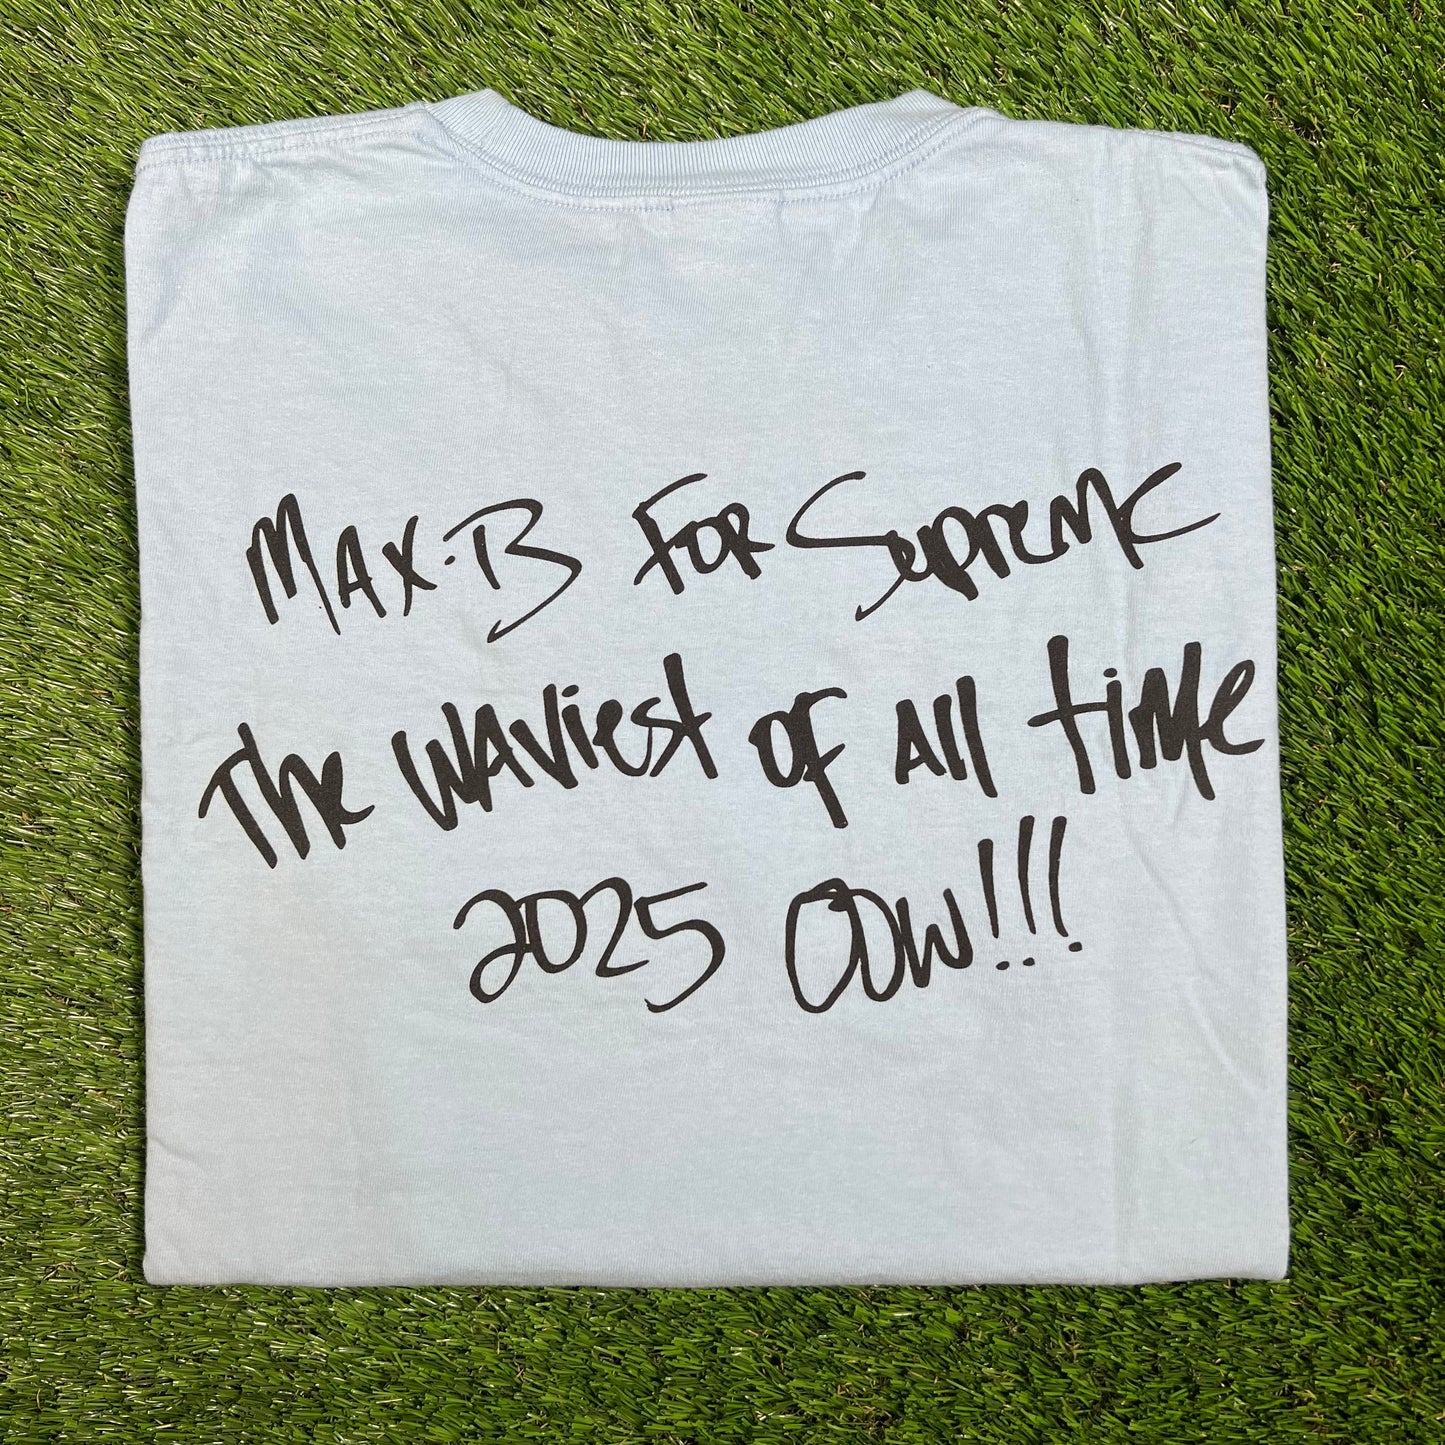 MAX.B FOR Supreme
The WAViest of All time
2025 OOW!!!